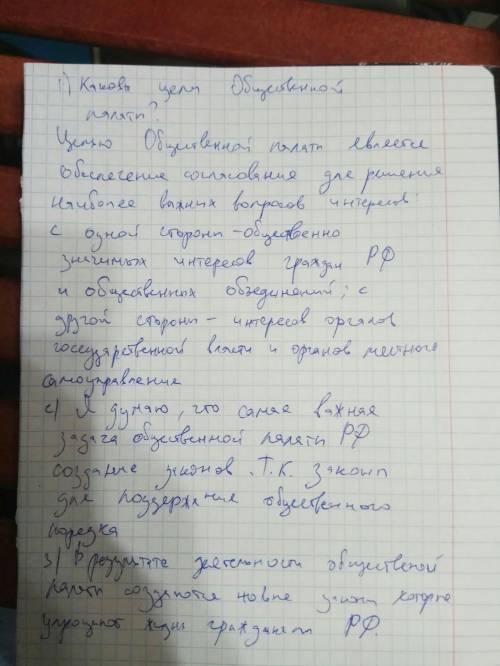 1) Каковы цели Общественной
палаты?
Целью Общественной палаты является
обеспечение согласования для решения
наиболее важных вопросов интересов:
с одной стороны - общественно
значимых интересов граждан РФ
и общественных объединений; с
другой стороны - интересов органов
государственной власти и органов местного
самоуправление
2) Я думаю, что самая важная
задача общественной палаты РФ
создание законов. Т.К. Закон
для поддержание общественного
порядка
3) В результате деятельности общественой
палаты создаются новые законы которые
упрощают жизнь гражданам РФ.